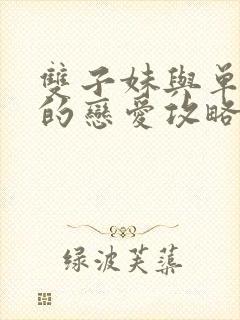 雙子妹與單
的戀愛攻略
绿波芙蕖